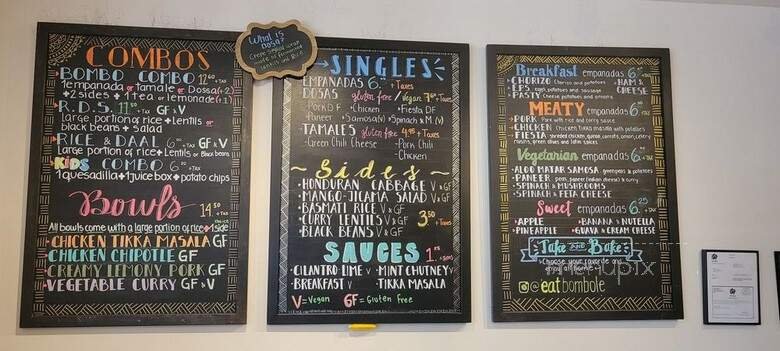 COMBOS
BOMBO COMBO 12.50 + TAX
1 empanada or tamale or Dosa (+2)
+ 2 sides + 1 tea or lemonade (+1)
R.D.S. 11.50 + TAX GF & V
large portion of rice + Lentils or
black beans + salad
RICE & DAAL 6.00 + TAX GF & V
Large portion of rice + Lentils or Black beans
KIDS COMBO 6.00 + TAX
1 quesadilla + 1 juice box + potato chips
Bowls 14.50 + TAX
All bowls come with a large portion of rice + 1 side
CHICKEN TIKKA MASALA GF
CHICKEN CHIPOTLE GF
CREAMY LEMONY PORK GF
VEGETABLE CURRY GF & V
What is
Dosa?
Crepe shaped wrap
made of fermented
lentils and Rice
SINGLES
EMPANADAS 6. + Taxes
DOSAS gluten free / Vegan + Taxes
Pork D F · Chicken · Fiesta DF
Paneer · Samosa (V) · Spinach & M. (V)
TAMALES gluten free 4.95 + Taxes
- Green Chili Cheese - Pork Chili
- Chicken
~ Sides ~
HONDURAN CABBAGE V & GF
MANGO-JICAMA SALAD V & GF
BASMATI RICE V & GF
CURRY LENTILS V & GF
BLACK BEANS V & GF
3.50 + Taxes
SAUCES
CILANTRO LIME V · MINT CHUTNEY V
BREAKFAST V · TIKKA MASALA
V = Vegan GF = Gluten Free
Breakfast empanadas 6. + TAX
CHORIZO Chorizo and potatoes · HAM &
EPS eggs, potatoes and sausage CHEESE
PASTY Cheese potatoes and onions
MEATY empanadas 6. + TAX
PORK Pork with rice and curry sauce
CHICKEN Chicken tikka masala with potatoes
FIESTA shredded chicken, queso, carrots, onion, celery
raisins, green olives and latin spices
Vegetarian empanadas 6. + TAX
ALOO MATAR SAMOSA green peas & potatoes
PANEER peas, paneer (indian cheese) & curry
SPINACH & MUSHROOMS
SPINACH & FETA CHEESE
Sweet empanadas 6.25 + TAX
APPLE · BANANA & NUTELLA
PINEAPPLE · GUAVA & CREAM CHEESE
Take AND Bake
Choose your favorite and
enjoy at home
@eatbombole
menupix